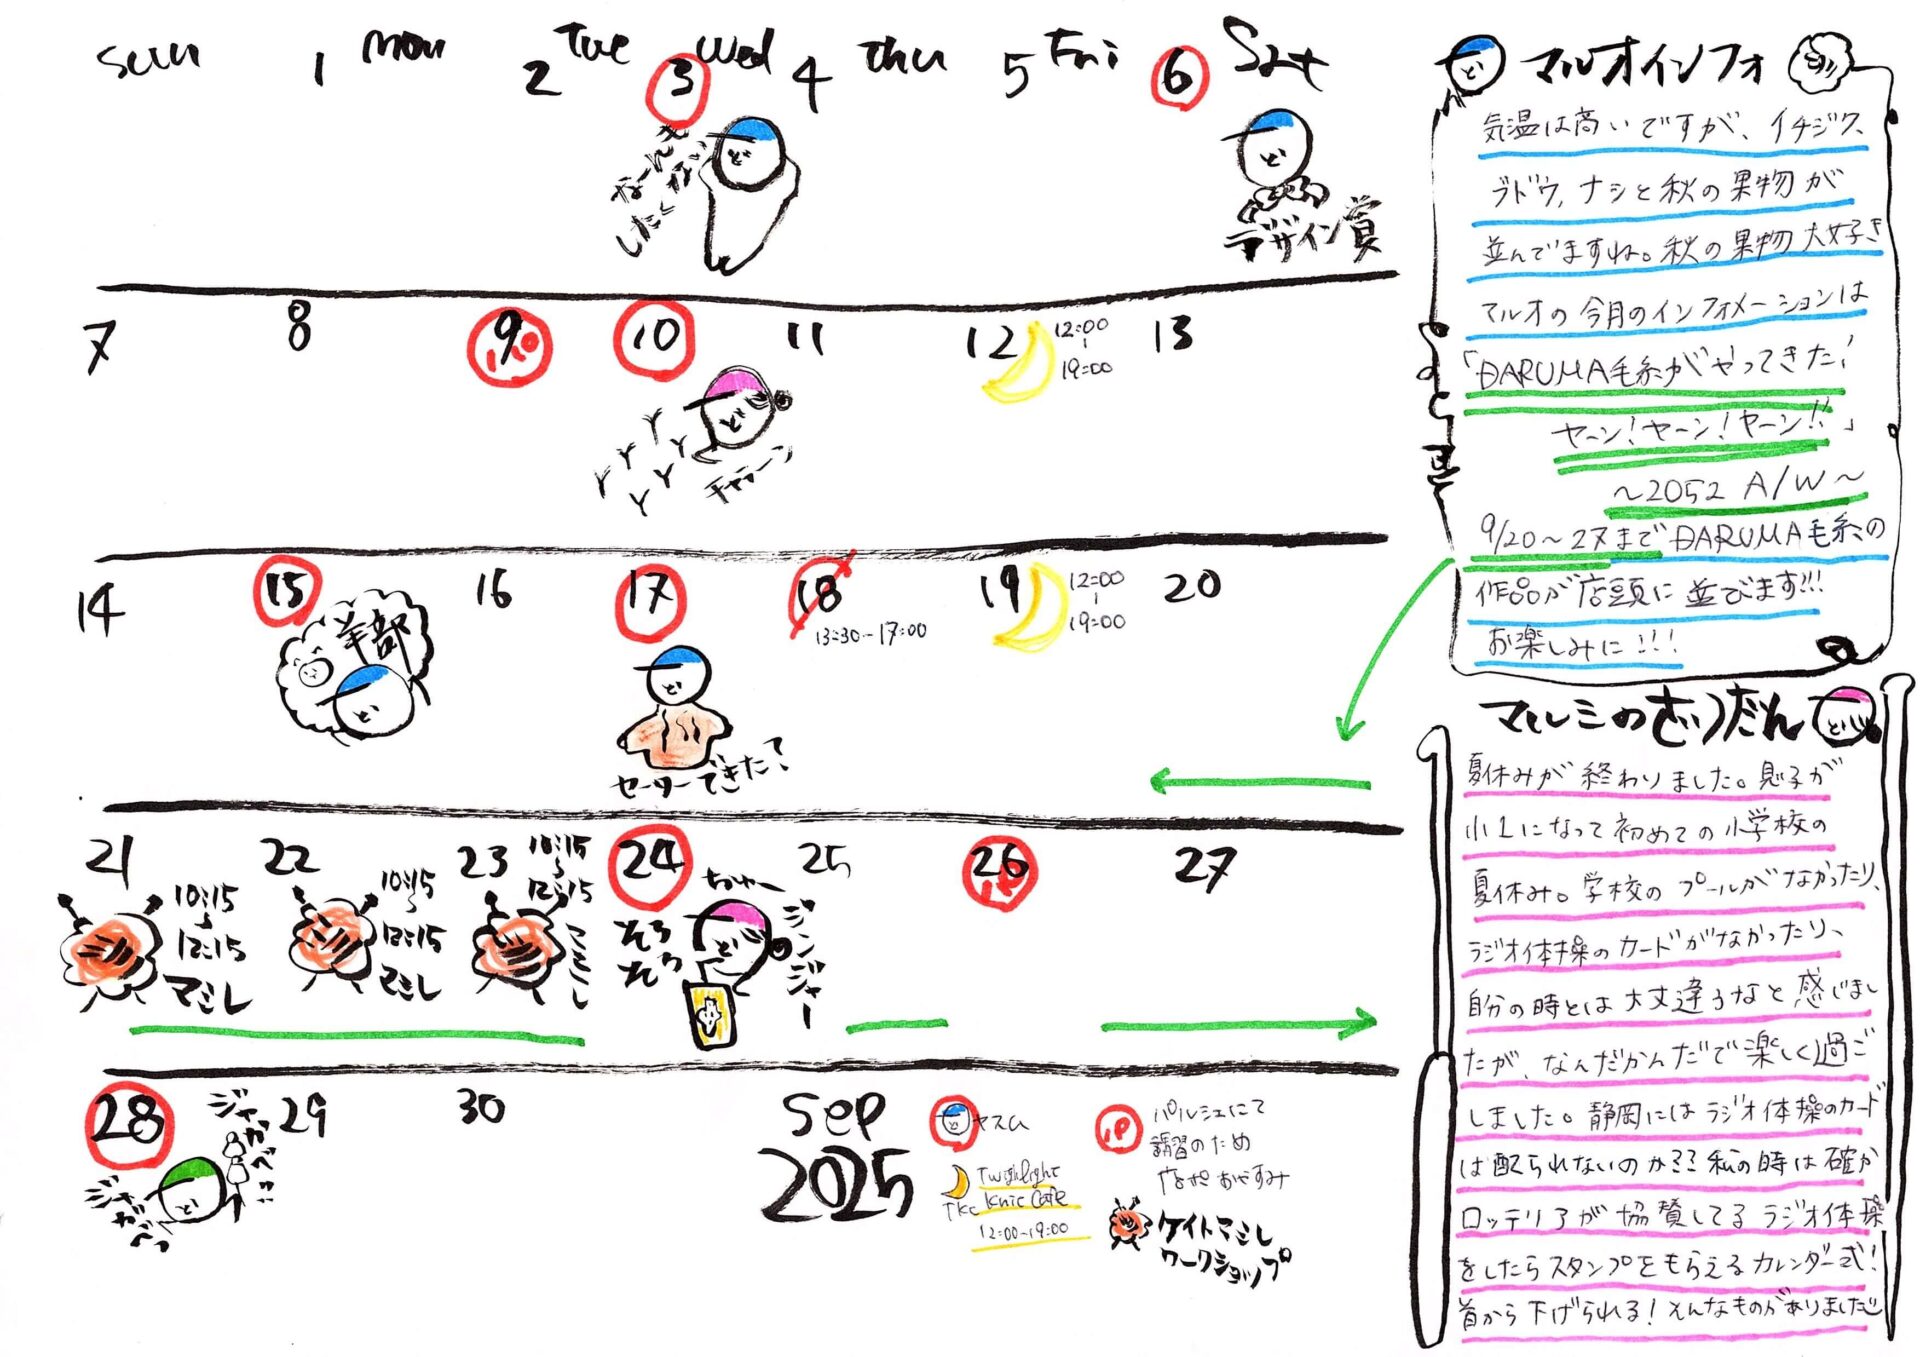 sun mon Tue Wed Thu Fri Sat
1 2 3 4 5 6
デザイン賞
7 8 9 10 11 12 13
12:00
19:00
Y Y Y Y Y Y Y
14 15 16 17 18 19 20
羊部
13:30-17:00
12:00
19:00
セーターできた?
21 22 23 24 25 26 27
10:15
12:15
マミレ
10:15
12:15
マミレ
10:15
12:15
マミレ
そろ
そろ
ジンジャー
28 29 30
ジャガベ
Sep
2025
ヤスム
Twighlight
TKC Knic Cafe
12:00-19:00
パルシェにて
講習のため
ケイトマミレ
ワークショップ
マルオインフォ
気温は高いですが、イチジク、
ブドウ,ナシと秋の果物が
並んでますね。秋の果物大好き
マルオの今月のインフォメーションは
「DARUMA毛糸がやってきた!
ヤーン!ヤーン!ヤーン!!」
~2052 A/W~
9/20~27までDARUMA毛糸の
作品が店頭に並びます!!!
お楽しみに!!!
マルミのざつだん
夏休みが終わりました。息子が
小1になって初めての小学校の
夏休み。学校のプールがなかったり、
ラジオ体操のカードがなかったり、
自分の時とは大丈違うなと感じまし
たが、なんだかんだで楽しく過ご
しました。静岡にはラジオ体操のカード
は配られないのか??私の時は確か
ロッテリアが協賛してるラジオ体操
をしたらスタンプをもらえるカレンダー式!
首から下げられる!そんなものがありました